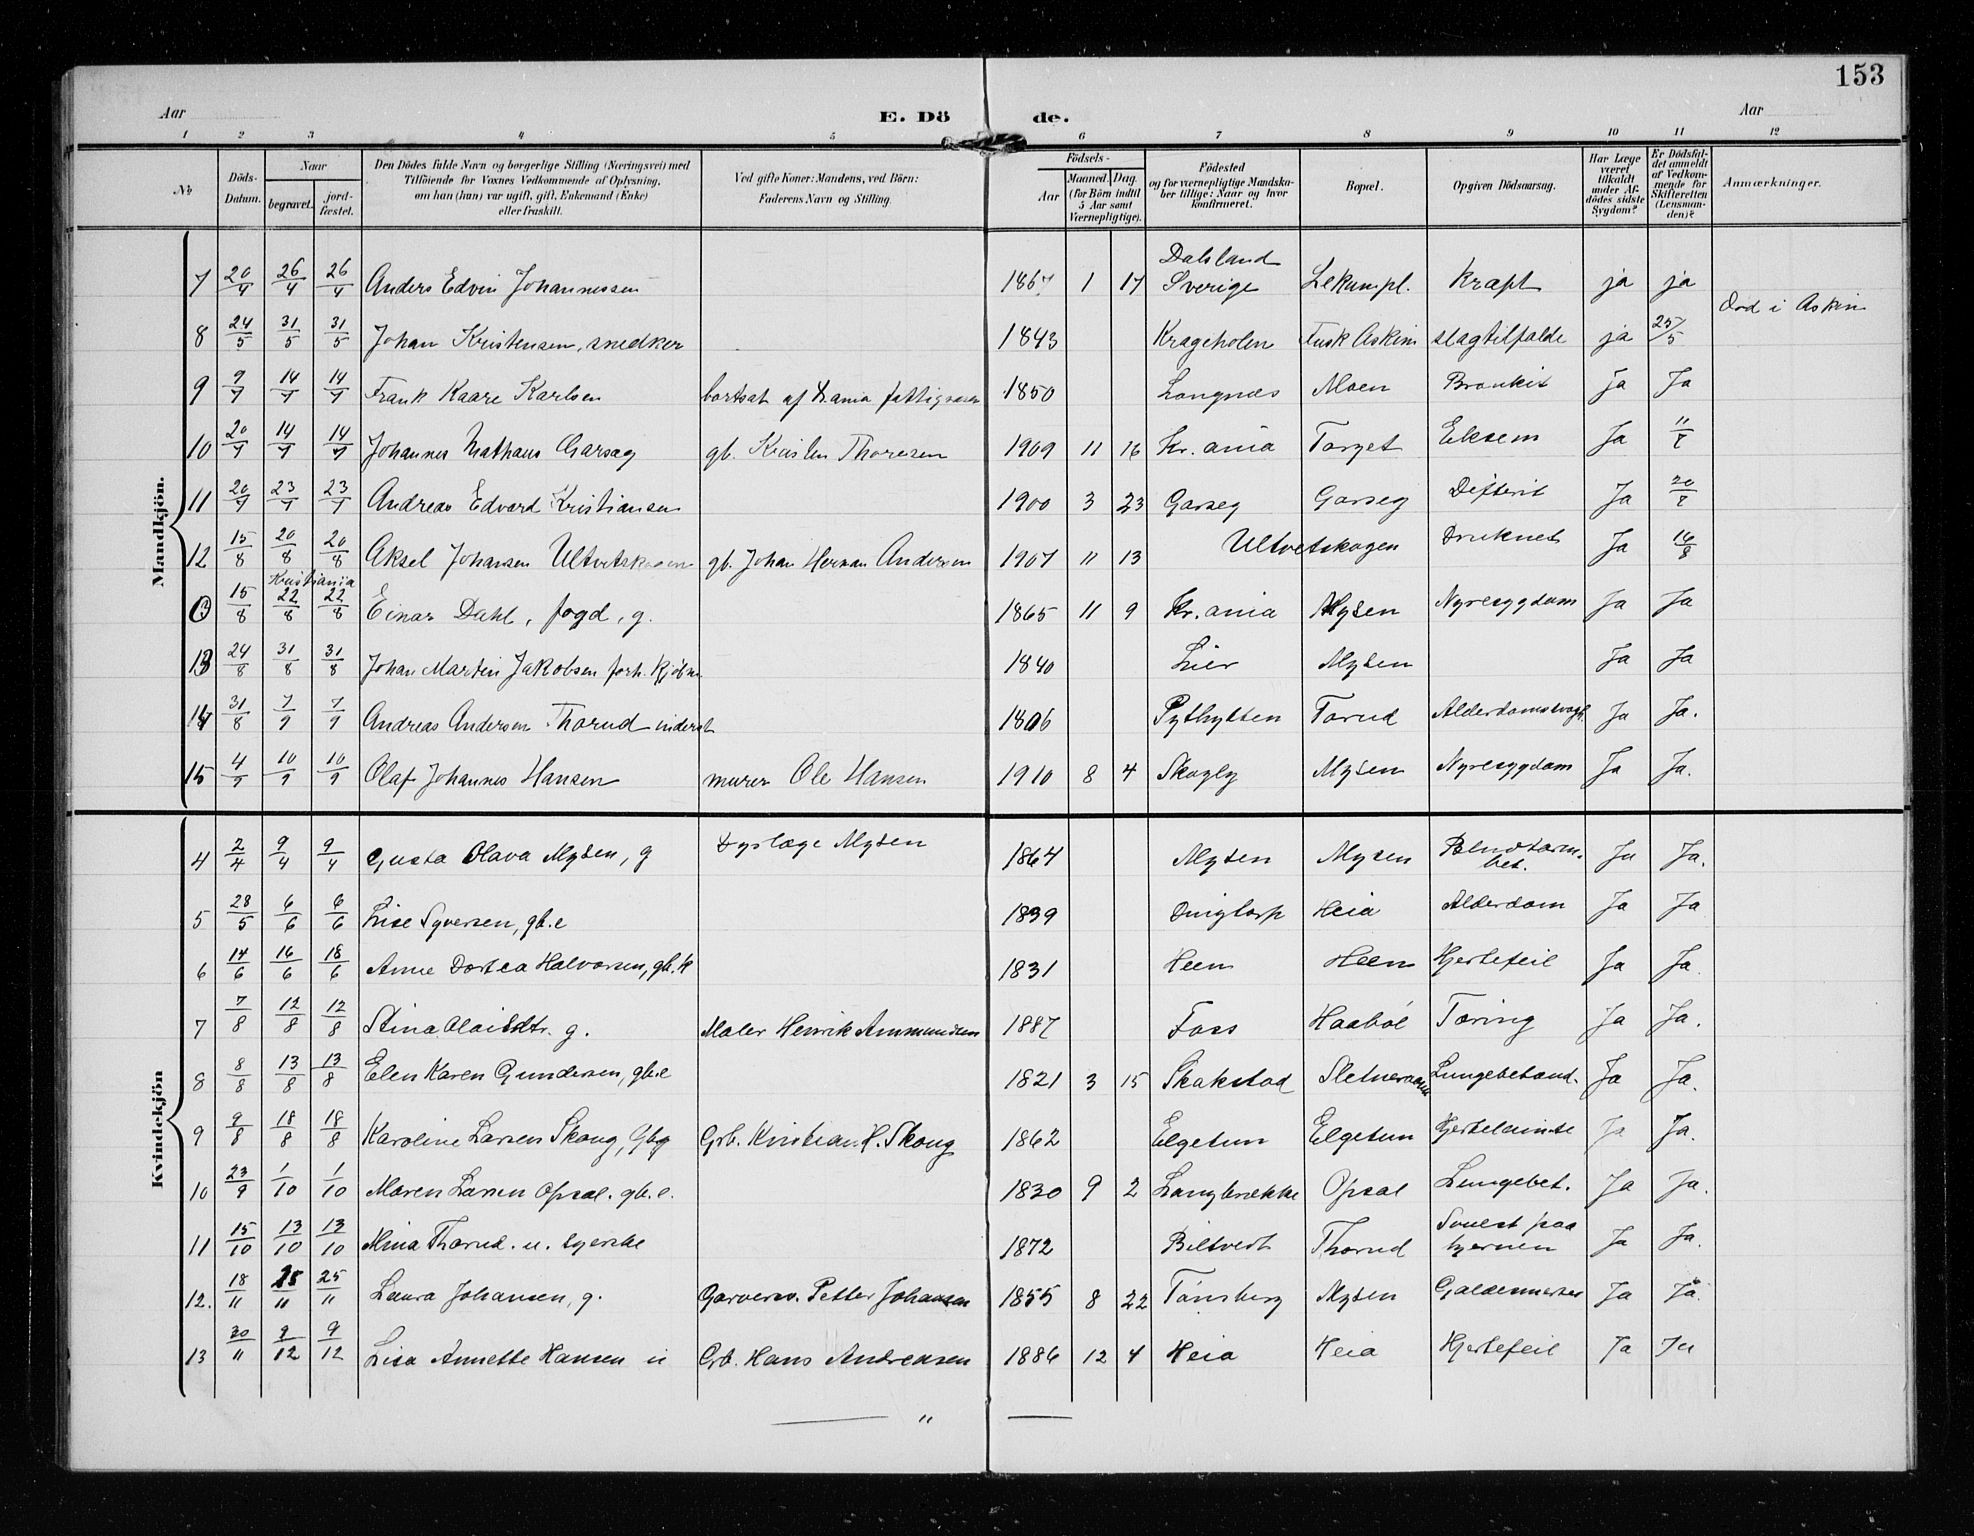 153
Aar
E. Dö
de.
Aar
1 2 3 4 5 6 7 8 9 10 11 12
No
Döds-Datum.
Naar
begravet.
jordfæstet.
Den Dödes fulde Navn og borgerlige Stilling (Næringsvei) med Tilföiende for Voxnes Vedkommende af Oplysning, om han (hun) var ugift, gift, Enkemand (Enke) eller fraskilt.
Ved gifte Koner: Mandens, ved Börn: Faderens Navn og Stilling.
Födsels-
Aar
Maaned. Dag.
(for Börn indtil 5 Aar samt Værnepligtige).
Födested og for værnepligtige Mandskaber tillige: Naar og hvor konfirmeret.
Bopæl.
Opgiven Dödsaarsag.
Har Læge været tilkaldt under Afdödes sidste Sygdom?
Er Dödsfaldet anmeldt af Vedkommende for Skifteretten (Lensmanden)?
Anmærkninger.
Mandkjön.
7 20/4 26/4 26/4 Anders Edvin Johannessen 1867 1 17 Dalsland Sverige Lekumpl. Kræft ja ja
8 24/5 31/5 31/5 Johan Kristensen, snedker 1843 Krageholen Fusk Askim slagtilfælde ja 25/5 Död i Askim
9 9/7 14/7 14/7 Frank Kaare Karlsen bortsat af Krania fattigvæsen 1850 Langnæs Moen Bronkit Ja Ja
10 20/7 14/7 14/7 Johannes Mathæus Garsæg gb. Kristen Thoresen 1909 11 16 Kr.ania Torget Eksem Ja 11/7
11 20/7 23/7 23/7 Andreas Edvard Kristiansen 1900 3 23 Garseg Garseg Difterit Ja 20/7
12 15/8 20/8 20/8 Aksel Johansen Ultvetskogen gb. Johan Herman Andersen 1907 11 13 Ultvetskogen Druknet Ja 16/8
Kristiania
15/8 22/8 22/8 Einar Dahl, fogd, g. 1865 11 9 Kr.ania Mysen Nyresygdom Ja Ja
13 24/8 31/8 31/8 Johan Martin Jakobsen forh. kjøbm. 1840 Lier Mysen Ja Ja
14 31/8 7/9 7/9 Andreas Andersen Thorud inderst 1806 Pythytten Torud Alderdomssvagh. Ja Ja.
15 4/9 10/9 10/9 Olaf Johannes Hansen murer Ole Hansen 1910 8 4 Skogly Mysen Nyresygdom Ja Ja.
Kvindekjön
4 2/4 9/4 9/4 Gusta Olava Mysen, g Dyrlæge Mysen 1864 Mysen Mysen Blindtarm. bet. Ja Ja.
5 28/5 6/6 6/6 Lise Syversen, gb.e 1839 Dingtorp Heia Alderdom Ja Ja
6 14/6 16/6 18/6 Anne Dortea Halvorsen, gb.k 1831 Heen Heen Hjertefeil Ja Ja.
7 7/8 12/8 12/8 Stina Olaisdtr. g. Maler Henrik Ammundsen 1887 Foss Haabøl Tæring Ja Ja.
8 8/8 13/8 13/8 Elen Karen Gundersen, gb.e 1821 3 15 Skakstad Sletneraaen Lungebetænd. Ja Ja.
9 9/8 18/8 18/8 Karoline Larsen Skoug, Gbg Grb. Kristian H. Skoug 1862 Elgetun Elgetun Hjertelamelse Ja Ja.
10 23/9 1/10 1/10 Maren Larsen Opsal. gb.e. 1830 9 2 Langbrække Opsal Lungebet. Ja Ja.
11 15/10 13/10 13/10 Mina Thorud. u. syerske 1872 Biltvedt Thorud Svulst paa hjernen Ja Ja.
12. 18/11 25/11 25/11 Laura Johansen, g. Garversv. Petter Johansen 1855 8 22 Tønsberg Mysen Galdesten Ja Ja
13 30/11 9/12 9/12 Lisa Annette Hansen u Grb. Hans Andreasen 1886 12 4 Heia Heia Hjertefeil Ja Ja
"